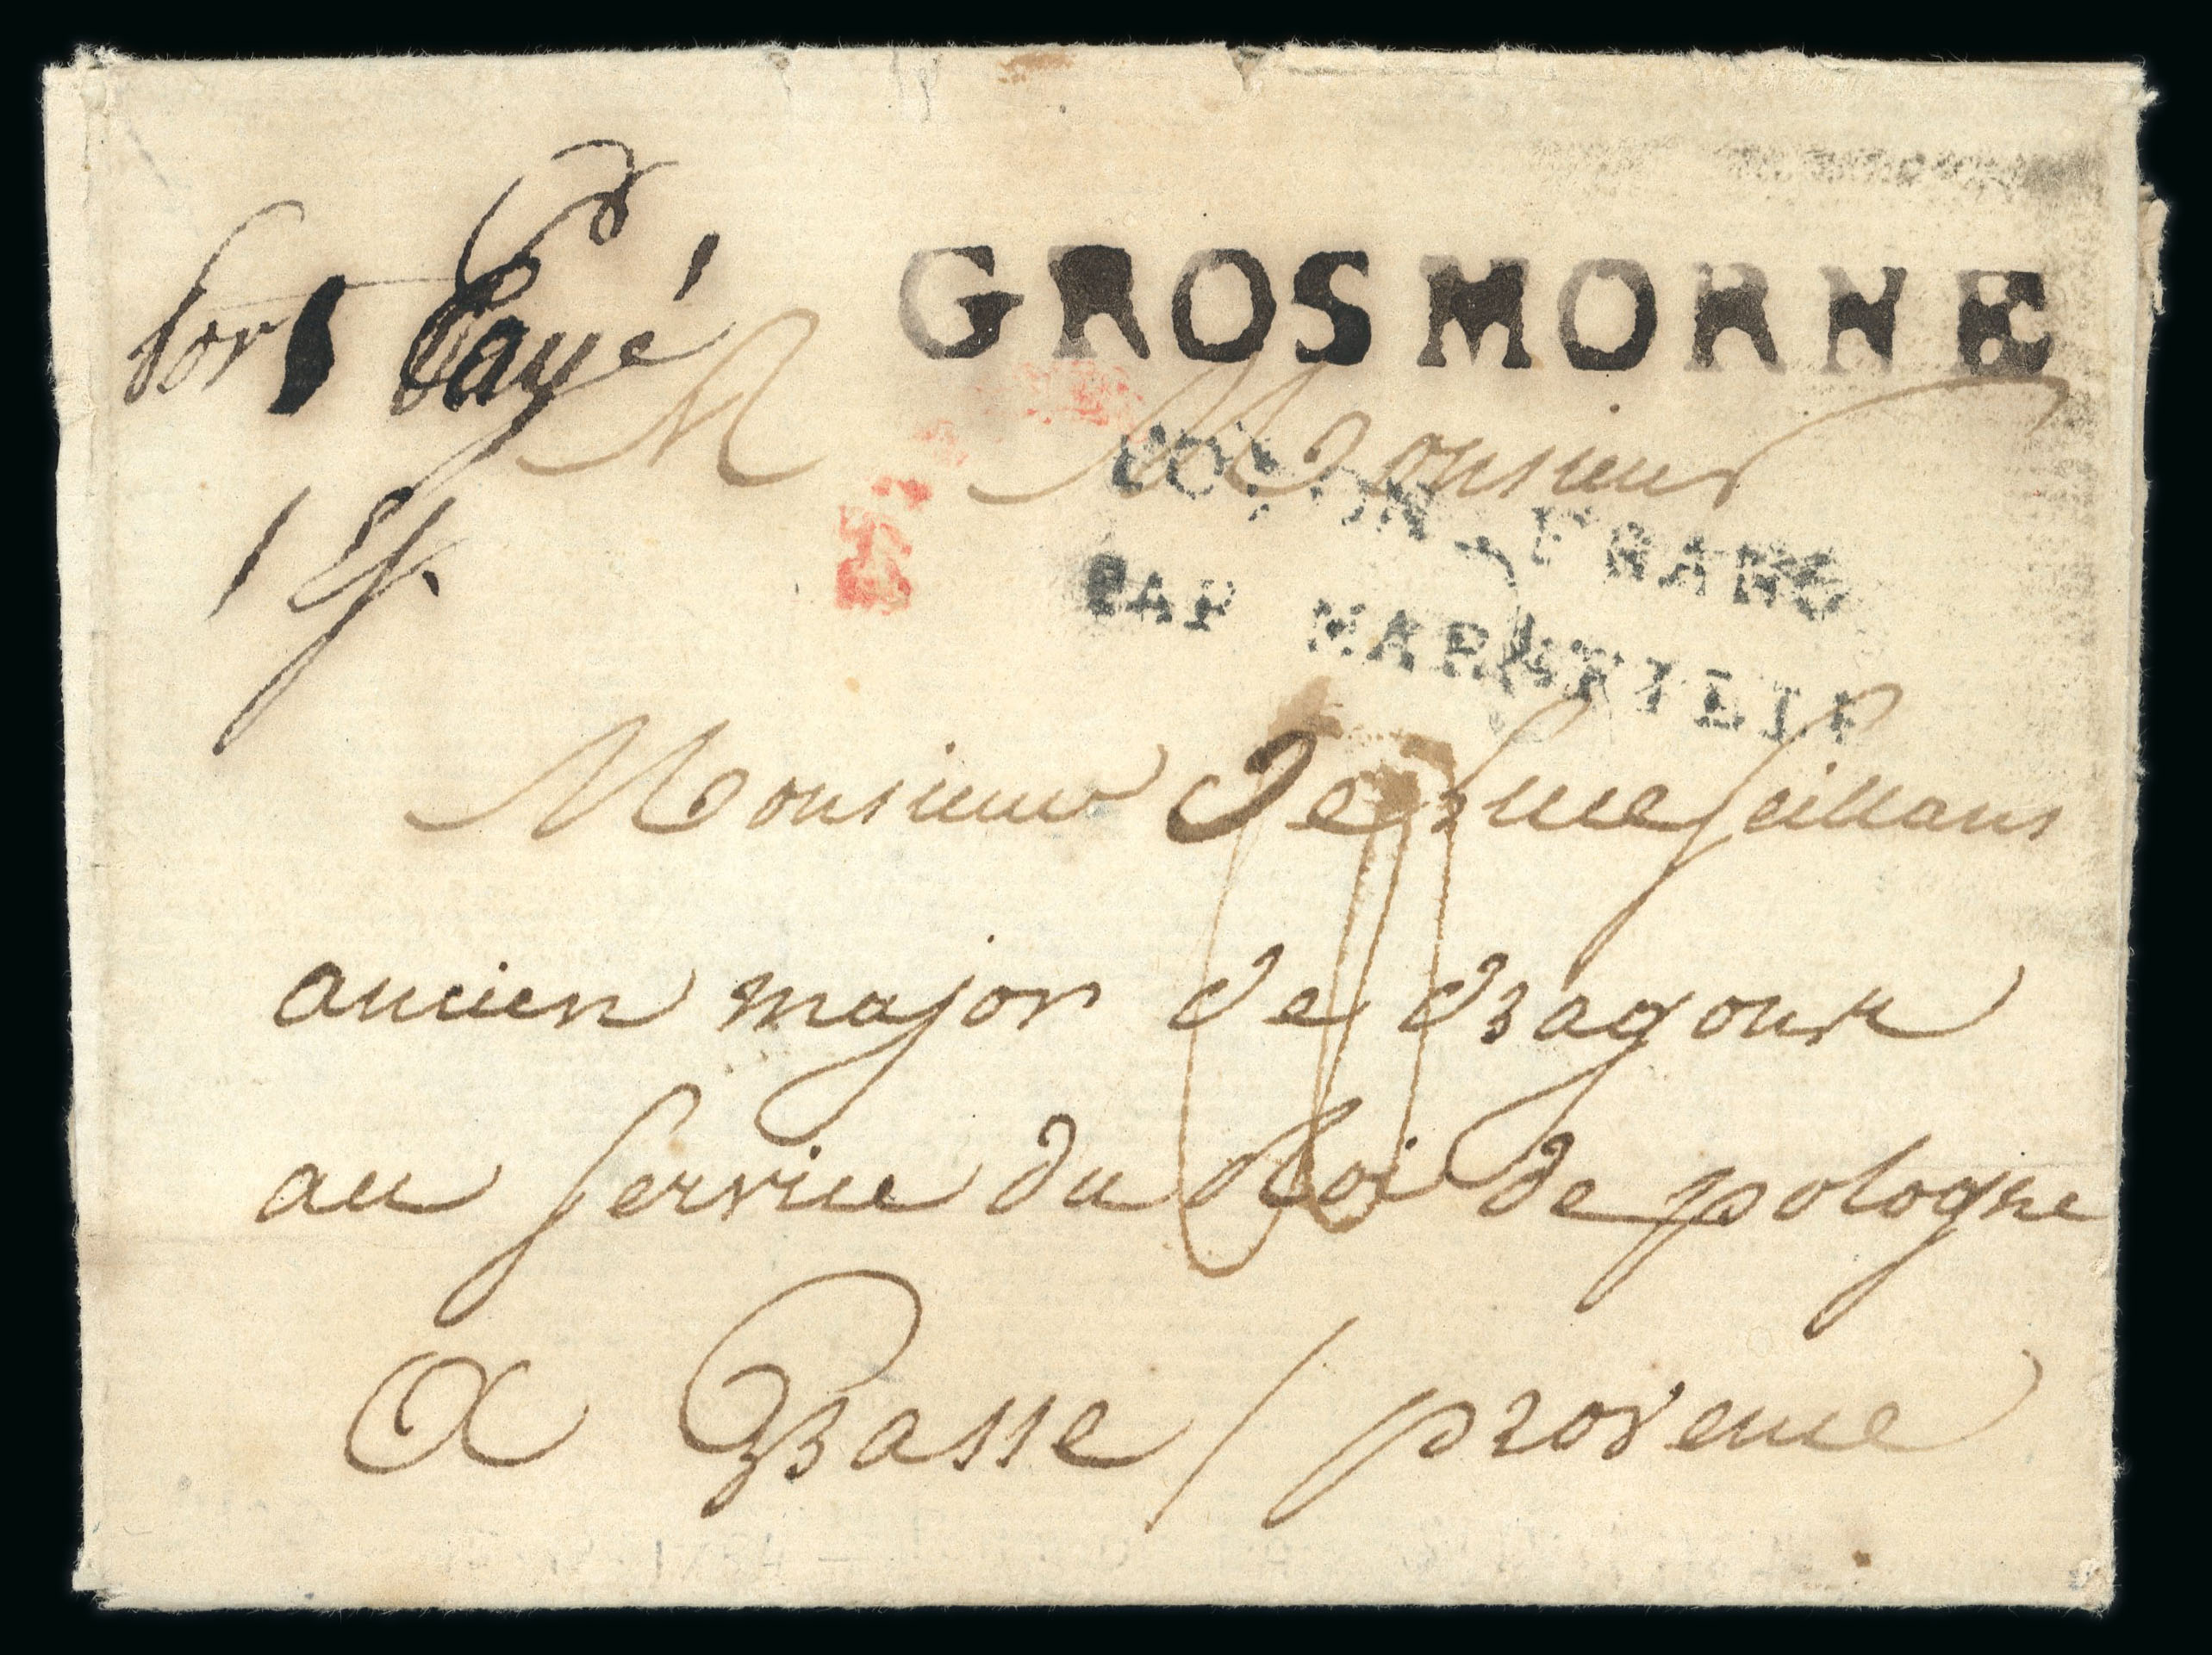 Port Payé
GROSMORNE
M Monsieur
COLON. FRANC
PAR MARSEILLE
Monsieur de Seillans
ancien major de dragons
au service du Roi de pologne
A Grasse / provence